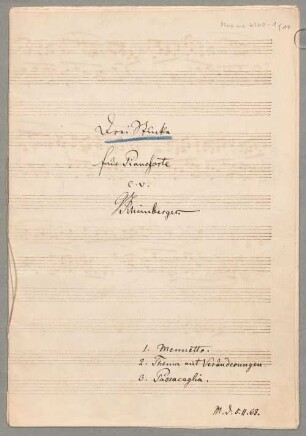 Drei Stücke
für Pianoforte
c. v.
JRheinberger
1. Menuetto.
2. Thema mit Veränderungen
3. Passacaglia.